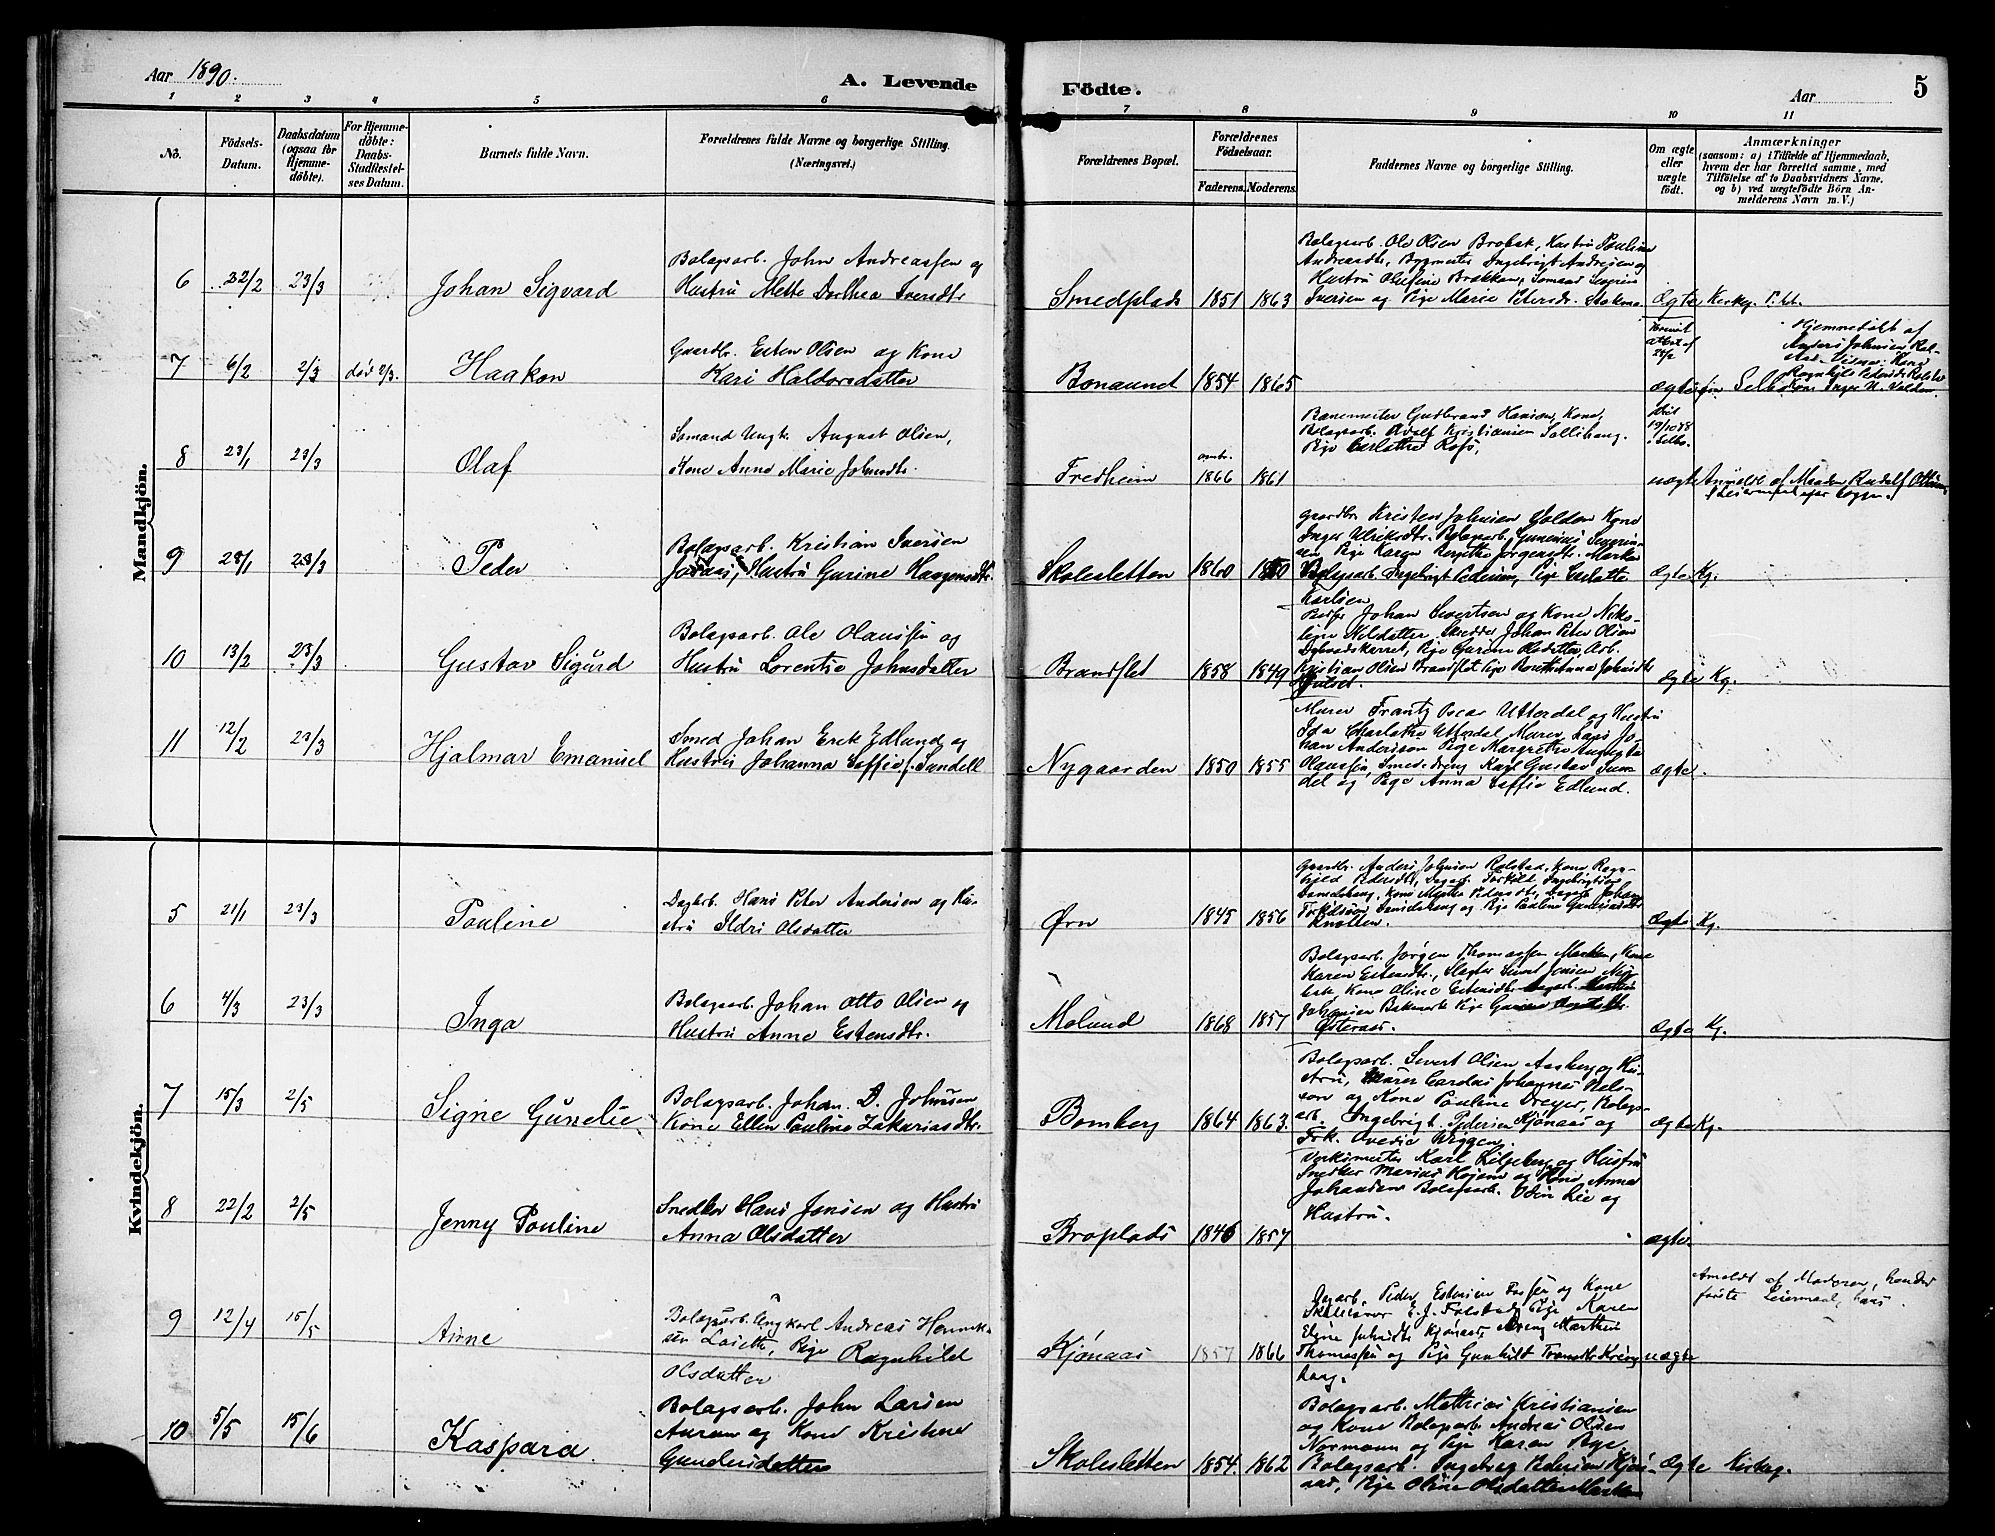 Aar 1890.
A. Levende Födte.
Aar
5
1 2 3 4 5 6 7 8 9 10 11
No.
Födsels-Datum.
Daabsdatum (ogsaa for Hjemme-döbte).
For Hjemme-döbte: Daabs-Stadfestel-ses Datum.
Barnets fulde Navn.
Forældrenes fulde Navne og borgerlige Stilling. (Næringsvei.)
Forældrenes Bopæl.
Forældrenes Födselsaar.
Faderens. Moderens.
Faddernes Navne og borgerlige Stilling.
Om ægte eller uægte födt.
Anmærkninger
(saasom: a) i Tilfælde af Hjemmedaab,
hvem der har forrettet samme, med
Tilföielse af to Daabsvidners Navne,
og b) ved uægtefödte Börn An-
melderens Navn m. V.)
Mandkjön.
6 22/2 23/3 Johan Sigvard
Bolagsarb. John Andreassen og
Hustru Mette Dorthea Iversdtr
Smedplads 1851 1863
Bolagsarb. Ole Olsen Brobak, Hustru Pauline
Andreasdtr, Bygmester Ingebrigt Andresen og
Hustru Olefine Brækken, Sömand Severin
Iversen og Pige Marie Petersdr.
Ægte Kirkg.
7 6/2 2/3 død 2/3. Haakon
Gaardbr. Esten Olsen og Kone
Kari Haldorsdatter
Bonaund 1854 1865
ægte
Hjemmedøbt af
Anders Johnsen Rol-
stad. Vidner: Kone
Ragnhild Pedersdt. Rolstad
Kone Inger U. Volden.
8 23/1 23/3 Olaf
Sømand Ungk. August Olsen,
Kone Anne Marie Johnsdtr.
Fredheim omtr. 1866 1861
Banemester Gudbrand Hansen, Kone,
Bolagsarb. Adolf Kristiansen Sollihaug,
Pige
Død 19/10 88 i Selbo.
uægte Anmeldt af Moderen
9 28/1 23/3 Peder
Bolagsarb. Kristian Iversen
Hustru Gurine Haagensdtr.
Skolesletten 1860
Gaardbr. Kristen Johnsen Volden Kone
Inger Ulriksdtr. Bolagsarb. Gunerius Severin-
sen, Pige Karen Jörgensdtr. Marken
Bolagsarb. Ingebrigt Pedersen, Pige
Karlsen
Ægte Kg.
10 13/2 23/3 Gustav Sigurd
Bolagsarb. Ole Olaussen og
Hustru Lorentse Johnsdatter
Brandslet 1858 1849
Johan Sivertsen og Kone Niko-
line Nilsdatter, Skrædder Johan Peter Olsen
Pige Gurine Olsdatter, Arb.
Kristian Olsen Brandslet Pige Johnsdtr
Ægte Kg.
11 12/2 23/3 Hjalmar Emanuel
Smed Johan Erik Edlund og
Hustru Johanna Soffie f. Sundell
Nygaarden 1850 1855
Murer Frantz Oscar Utterdal og Hustru
Ida Charlotte Utterdal, Murer Lars Jo-
han Anderson Pige Margrethe
Olaussen, Smededreng Karl Gustav Sun-
del og Pige Anna Soffie Edlund.
Ægte.
Kvindekjön.
5 21/1 23/3 Pauline
Dagarb. Hans Peter Andersen og Hu-
stru Ildri Olsdatter
Ørn 1845 1856
Gaardbr. Anders Johnsen Rolstad, Kone Ragn-
hild Pedersdtr, Dagarb. Torkild Ingebrigtsen
Kone Marthe Pedersdtr, Dagarb. Johan
Torkildsen og Pige Pauline
Knollen.
Ægte Kg.
6 4/3 23/3 Inga
Bolagsarb. Johan Otto Olsen og
Hustru Anne Estensdtr.
Molund 1868 1857
Bolagsarb. Jörgen Thomassen Marken, Kone
Karen Estensdtr., Slagter Sivert Jensen
Kone Oline Estensdtr
Johansen Bakmark Pige
Østeraas.
Ægte Kg.
7 15/3 2/5 Signe Gunelie
Bolagsarb. Johan D. Johnsen
Kone Ellen Pauline Zakariasdtr.
Bomberg 1864 1863.
Bolagsarb. Sivert Olsen Aasberg og Hu-
stru, Murer Carolus Johannes Nel-
son og Kone Pauline Dreyer, Bolags-
arb. Ingebrigt Pedersen Kjönaas og
Frk. Ovedie Wiggen.
Ægte Kg.
8 22/2 2/5 Jenny Pauline
Snedker Hans Jensen og Hustru
Anna Olsdatter
Broplads 1846 1857
Verksmester Karl Liljeberg og Hustru
Snedker Marius Höiem og Kone Anna
Johansdtr Bolagsarb. Odin Lie og
Hustru.
ægte.
9 12/4 15/5 Anne
Bolagsarb. Ungkarl Andreas Henrik-
sen Pige Ragnhild
Olsdatter
Kjönaas 1857 1866
Dagarb. Peder Estensen Fossen og Kone
Skolelærer E. J. Folstad, Pige Karen
Eline Johnsdtr Kjönaas, Dreng Marthin
Thomassen og Pige Gunhild
haug.
uægte
Anmeldt af Moderen, hendes
første Leiermaal, hans
10 5/5 15/6 Kaspara
Bolagsarb. John Larsen
Aunan og Kone Kristine
Gundersdatter
Skolesletten 1854. 1862
Bolagsarb. Mathias Kristiansen
og Kone Bolagsarb. Andreas Olsen
Normann og Pige Karen Bye
Bolagsarb. Ingebrigt Pedersen Kjön-
aas, Pige Oline Olsdatter Marken
Ægte Kirkeg.